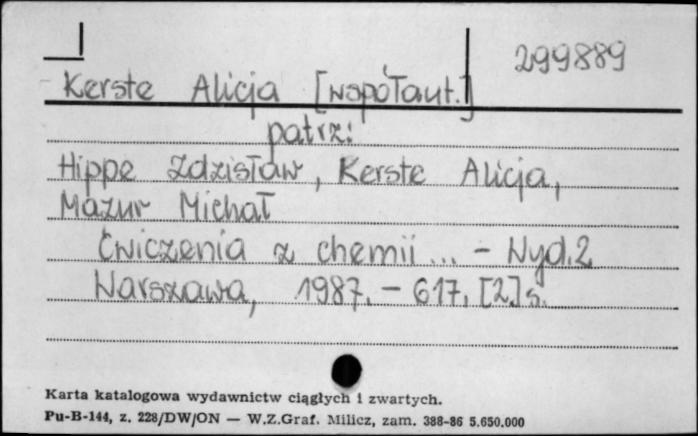 299889
Kerste Alicja [współaut.]
patrz:
Hippe Zdzisław, Kerste Alicja,
Mazur Michał
Ćwiczenia z chemii ... - Wyd. 2
Warszawa, 1987. - 617, [2] s.
Karta katalogowa wydawnictw ciągłych i zwartych.
Pu-B-144, z. 228/DW/ON — W.Z.Graf. Milicz, zam. 388-86 5.650.000